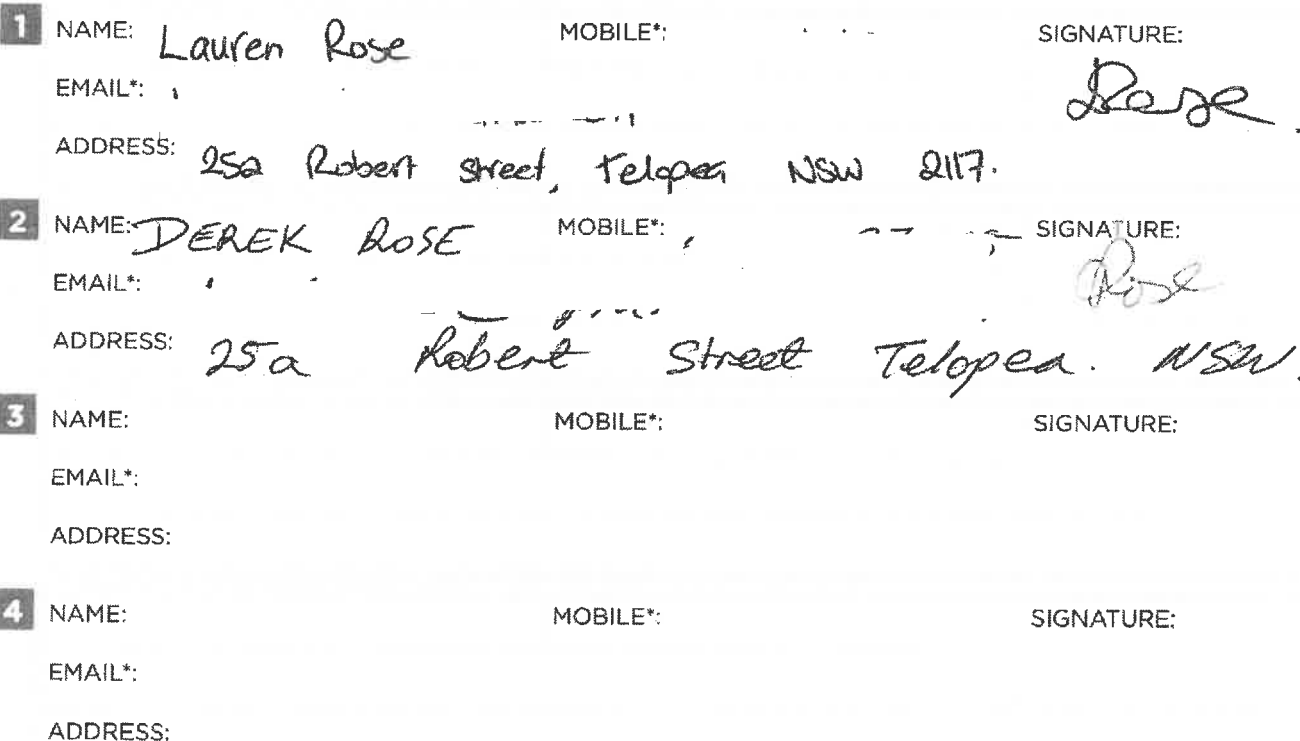 1 NAME: Lauren Rose MOBILE*: SIGNATURE:
EMAIL*: Rose
ADDRESS: 25a Robert street, Telopea NSW 2117.
2 NAME: DEREK ROSE MOBILE*: SIGNATURE:
EMAIL*: Rose
ADDRESS: 25a Robert Street Telopea. NSW.
3 NAME: MOBILE*: SIGNATURE:
EMAIL*:
ADDRESS:
4 NAME: MOBILE*: SIGNATURE:
EMAIL*:
ADDRESS: